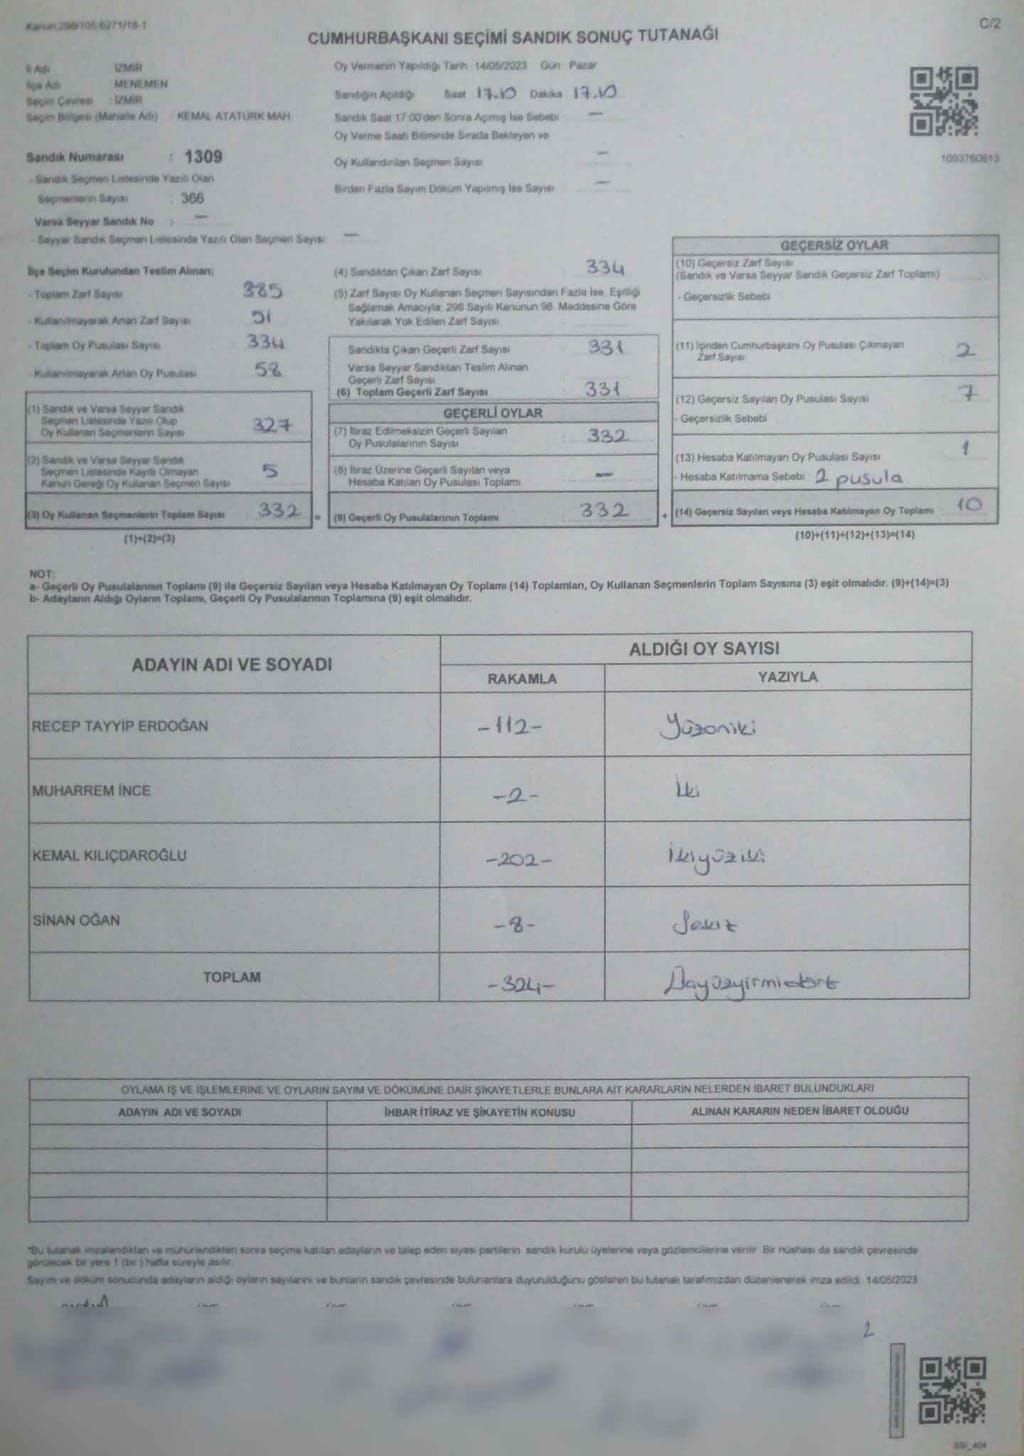 Kanun:298/105,6271/18-1
C/2
CUMHURBAŞKANI SEÇİMİ SANDIK SONUÇ TUTANAĞI
İl Adı : İZMİR
İlçe Adı : MENEMEN
Seçim Çevresi : İZMİR
Seçim Bölgesi (Mahalle Adı) : KEMAL ATATÜRK MAH
Sandık Numarası : 1309
- Sandık Seçmen Listesinde Yazılı Olan
Seçmenlerin Sayısı : 366
Varsa Seyyar Sandık No : —
- Seyyar Sandık Seçmen Listesinde Yazılı Olan Seçmen Sayısı : —
Oy Vermenin Yapıldığı Tarih 14/05/2023 Gün Pazar
Sandığın Açıldığı Saat 17.10 Dakika 17.10
Sandık Saat 17:00'den Sonra Açılmış İse Sebebi —
Oy Verme Saati Bitiminde Sırada Bekleyen ve
Oy Kullandırılan Seçmen Sayısı —
Birden Fazla Sayım Döküm Yapılmış İse Sayısı —
1093760813
İlçe Seçim Kurulundan Teslim Alınan;
- Toplam Zarf Sayısı 385
- Kullanılmayarak Artan Zarf Sayısı 51
- Toplam Oy Pusulası Sayısı 334
- Kullanılmayarak Artan Oy Pusulası 58
(1) Sandık ve Varsa Seyyar Sandık
Seçmen Listesinde Yazılı Olup
Oy Kullanan Seçmenlerin Sayısı 327
(2) Sandık ve Varsa Seyyar Sandık
Seçmen Listesinde Kayıtlı Olmayan
Kanun Gereği Oy Kullanan Seçmen Sayısı 5
(3) Oy Kullanan Seçmenlerin Toplam Sayısı 332 =
(1)+(2)=(3)
(4) Sandıktan Çıkan Zarf Sayısı 334
(5) Zarf Sayısı Oy Kullanan Seçmen Sayısından Fazla İse, Eşitliği
Sağlamak Amacıyla, 298 Sayılı Kanunun 98. Maddesine Göre
Yakılarak Yok Edilen Zarf Sayısı
Sandıkta Çıkan Geçerli Zarf Sayısı 331
Varsa Seyyar Sandıktan Teslim Alınan
Geçerli Zarf Sayısı
(6) Toplam Geçerli Zarf Sayısı 331
GEÇERLİ OYLAR
(7) İtiraz Edilmeksizin Geçerli Sayılan
Oy Pusulalarının Sayısı 332
(8) İtiraz Üzerine Geçerli Sayılan veya
Hesaba Katılan Oy Pusulası Toplamı —
(9) Geçerli Oy Pusulalarının Toplamı 332 +
GEÇERSİZ OYLAR
(10) Geçersiz Zarf Sayısı
(Sandık ve Varsa Seyyar Sandık Geçersiz Zarf Toplamı)
- Geçersizlik Sebebi
(11) İçinden Cumhurbaşkanı Oy Pusulası Çıkmayan
Zarf Sayısı 2
(12) Geçersiz Sayılan Oy Pusulası Sayısı 7
- Geçersizlik Sebebi
(13) Hesaba Katılmayan Oy Pusulası Sayısı 1
- Hesaba Katılmama Sebebi 2 pusula
(14) Geçersiz Sayılan veya Hesaba Katılmayan Oy Toplamı 10
(10)+(11)+(12)+(13)=(14)
NOT:
a- Geçerli Oy Pusulalarının Toplamı (9) ile Geçersiz Sayılan veya Hesaba Katılmayan Oy Toplamı (14) Toplamları, Oy Kullanan Seçmenlerin Toplam Sayısına (3) eşit olmalıdır. (9)+(14)=(3)
b- Adayların Aldığı Oyların Toplamı, Geçerli Oy Pusulalarının Toplamına (9) eşit olmalıdır.
ADAYIN ADI VE SOYADI
ALDIĞI OY SAYISI
RAKAMLA YAZIYLA
RECEP TAYYİP ERDOĞAN -112- Yüzoniki
MUHARREM İNCE -2- İki
KEMAL KILIÇDAROĞLU -202- İkiyüziki
SİNAN OĞAN -8- Sekiz
TOPLAM -324- Üçyüzyirmidört
OYLAMA İŞ VE İŞLEMLERİNE VE OYLARIN SAYIM VE DÖKÜMÜNE DAİR ŞİKAYETLERLE BUNLARA AİT KARARLARIN NELERDEN İBARET BULUNDUKLARI
ADAYIN ADI VE SOYADI İHBAR İTİRAZ VE ŞİKAYETİN KONUSU ALINAN KARARIN NEDEN İBARET OLDUĞU
*Bu tutanak imzalandıktan ve mühürlendikten sonra seçime katılan adayların ve talep eden siyasi partilerin sandık kurulu üyelerine veya gözlemcilerine verilir. Bir nüshası da sandık çevresinde
görülecek bir yere 1 (bir) hafta süreyle asılır.
Sayım ve döküm sonucunda adayların aldığı oyların sayılarını ve bunların sandık çevresinde bulunanlara duyurulduğunu gösteren bu tutanak tarafımızdan düzenlenerek imza edildi. 14/05/2023
2